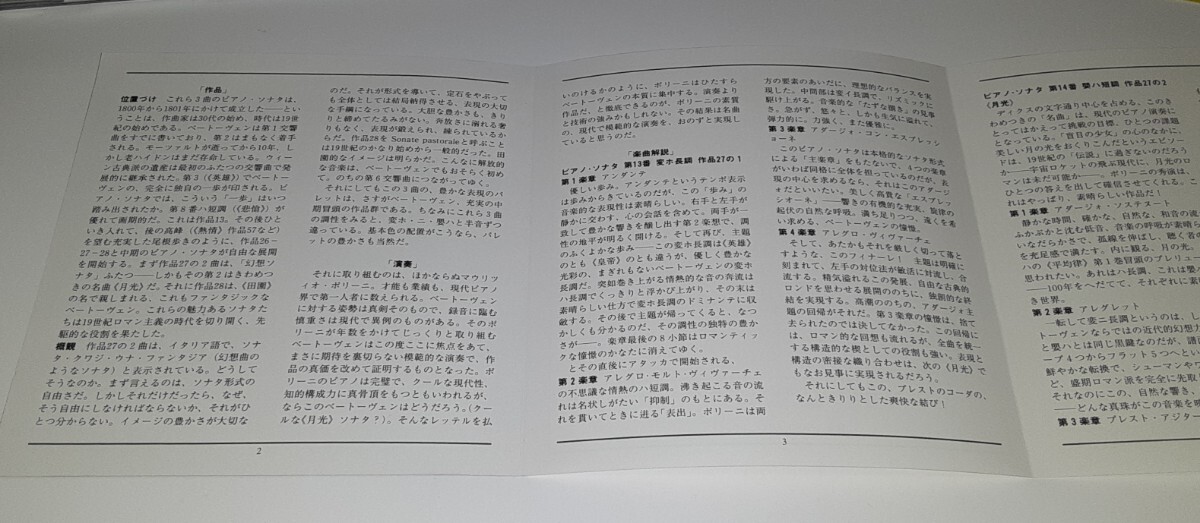 「作品」
位置づけ　これら3曲のピアノ・ソナタは、
1800年から1801年にかけて成立した――とい
うことは、作曲家は30代の始め、時代は19世
紀の始めである。ベートーヴェンは第1交響
曲をすでに書いており、第2はまもなく着手
される。モーツァルトが逝ってから10年、し
かし老ハイドンはまだ存命している。ウィー
ン古典派の遺産は最初のふたつの交響曲で発
展的に継承された。第3（《英雄》）でベートー
ヴェンの、完全に独自の一歩が印される。ピ
アノ・ソナタでは、こういう「一歩」はいつ
踏み出されたか。第8番ハ短調（《悲愴》）が
優れて画期的だ。これは作品13。その後ひと
いき入れて、後の高峰（《熱情》作品57など）
を望む充実した尾根歩きのように、作品26－
27－28と中期のピアノ・ソナタが自由な展開
を開始する。まず作品27の2曲は、「幻想ソ
ナタ」ふたつ――しかもその第2はきわめつ
きの名曲《月光》だ。それに作品28は、《田園》
の名で親しまれる、これもファンタジックな
ソナタだ。これらの魅力あるソナタた
ちは19世紀ロマン主義の時代を切り開く、先
駆的な役割を果たした。
概観　作品27の2曲は、イタリア語で、ソナ
タ・クワジ・ウナ・ファンタジア（幻想曲の
ようなソナタ）と表示されている。どうして
そうなのか。まず言えるのは、ソナタ形式の
自由さだ。しかしそれだけだったら、なぜ、
そう自由にしなければならないか、それがひ
とつ分からない。イメージの豊かさが大切な
のだ。それが形式を導いて、定石をやぶって
も全体としては結局納得させる、表現の大切
な手綱になっている。大胆な豊かさも、きり
りと締めてたるみがない。奔放さに溺れる奢
りもなく、表現が鍛えられ、練られているか
らだ。作品28を Sonate pastorale と呼ぶこと
は19世紀のかなり始めから一般的だった。田
園的なイメージは明らかだ。こんなに解放的
な音楽は、ベートーヴェンでもおそらく初め
て。のちの第6交響曲につながってゆく。
それにしてもこの3曲の、豊かな表現のパ
レットは、さすがベートーヴェン、充実の中
期冒頭の作品群である。ちなみにこれら3曲
の調性をみると、変ホ・ニ・嬰ハと半音ずつ
違っている。基本色の配置がこうなら、パレ
ットの豊かさも当然だ。
「演奏」
それに取り組むのは、ほかならぬマウリツ
ィオ・ポリーニ。才能も業績も、現代ピアノ
界で第一人者に数えられる。ベートーヴェン
に対する姿勢は真剣そのもので、録音に臨む
慎重さは現代で異例のものがある。そのポリ
ーニが年数をかけてじっくりと取り組む
ベートーヴェンはこの度ここに焦点をあて、
まさに期待を裏切らない模範的な演奏で、作
品の真価を改めて証明するものとなった。ポ
リーニのピアノは完璧で、クールな現代性、
知的構成力に真骨頂をもつともいわれるが、
ならこのベートーヴェンはどうだろう。（クー
ルな《月光》ソナタ？）。そんなレッテルを払
2
いのけるかのように、ポリーニはひたすら
ベートーヴェンの本質に集中する。演奏より
作品だ、と徹底できるのが、ポリーニの素質
と技術の強みかもしれない。その結果は名曲
の、現代で模範的な演奏を、おのずと実現し
ていると思うのだ。
「楽曲解説」
ピアノ・ソナタ　第13番　変ホ長調　作品27の1
第1楽章　アンダンテ
優しい歩み。アンダンテというテンポ表示
は歩みからきているのだが、この「歩み」の
音楽的な表現性は素晴らしい。右手と左手が
静かに交わす、心の会話を含めて、両手が一
致して豊かな響きを醸し出す第2楽想で、調
性の地平が明るく開ける。そして再び、主題
のふくよかな歩み――この変ホ長調は《英雄》
のとも《皇帝》のとも違うが、優しく豊かな
光彩の、まぎれもないベートーヴェンの変ホ
長調だ。突如巻き上がる情熱的な音の奔流は
ハ長調でくっきりと浮かび上がり、その末は
素晴らしい仕方で変ホ長調のドミナンテに収
斂する。その後で主題が帰ってくると、なつ
かしくも分かるのだ、その調性の独特の豊か
さが――。楽章最後の8小節はロマンティッ
クな憧憬のかなたに消えてゆく。
とその直後にアタッカで開始される、
第2楽章　アレグロ・モルト・ヴィヴァーチェ
の不思議な情熱のハ短調。沸き起こる音の流
れは名状しがたい「抑制」のもとにある。そ
れを貫いてときに迸る「表出」。ポリーニは両
方の要素のあいだに、理想的なバランスを実
現した。中間部は変イ長調で、リズミックに
駆け上がる。音楽的な「たずな捌き」の見事
さ。急がず、悠々と、しかも生気に溢れて、
弾力的に。力強く、また優雅に。
第3楽章　アダージョ・コン・エスプレッシ
オーネ
このピアノ・ソナタは本格的なソナタ形式
による「主楽章」をもたないで、4つの楽章
がいわば同格に全体を担っているのだが、表
現の中心を求めるなら、それはこのアダージ
ョだといいたい。美しく高貴な「エスプレッ
シオーネ」――響きの有機的な充実、旋律の
起伏の自然な呼吸。満ち足りつつ、遠くを希
い求める、ベートーヴェンの憧憬。
第4楽章　アレグロ・ヴィヴァーチェ
そして、あたかもそれを厳しく切って落と
すような、このフィナーレ！　主題は明確に
刻まれて、左手の対位法が敏活に対流し、合
流する。精気溢れるこの発展、自由な古典的
ロンドを思わせる展開ののちに、独創的な終
結を実現する。高潮ののちの、アダージョ主
題の回帰がそれだ。第3楽章の憧憬は、捨て
去られたのでは決してなかった。この回帰に
は、ロマン的な回想も流れるが、全曲を統一
する構造的な楔としての役割も強い。表現と
構造の密接な織り合わせは、次の《月光》で
もなお見事に実現されるだろう。
それにしてもこの、プレストのコーダの、
なんときりりとした爽快な結び！
3
ピアノ・ソナタ　第14番　嬰ハ短調　作品27の2
《月光》
クラスの文字通り中心を占める、このき
わめつきの「名曲」は、現代のピアノ演奏に
とってはかえって挑戦の目標、ひとつの課題
となっている。「盲目の少女」の心のなかに、
美しい月の光をおりくこんだというエピソー
ドは、19世紀の「伝説」に過ぎないのだろう
か――宇宙ロケットの飛ぶ現代に、月光のロ
マンは未だ可能か――。ポリーニの秀演は、
ひとつの答えを出して確信させてくれる。こ
れはやっぱり、素晴らしい作品だ！
第1楽章　アダージョ・ソステヌート
静かな時間、確かな、自然な、和音の流
ふかぶかと沈む低音、音楽の呼吸が素晴ら
いなだらかさで、孤線を伸ばし、聴く者の
を充足感で満たす。内に観る、月の光。
ハの《平均律》第1巻冒頭のプレリュー
思われたい。あれはハ長調、これは嬰ハ
――100年をへだてて、それぞれに素
き世界。
第2楽章　アレグレット
一転して変ニ長調というのは、し
トーヴェンならではの近代的幻想だ
と嬰ハとは同じ黒鍵なのだが、譜
ープ4つからフラット5つへとい
鮮やかな転換で、シューマンやワ
ど、盛期ロマン派を完全に先取り
それなのにこの、自然な響き、
――どんな真珠がこの音楽を
第3楽章　プレスト・アジター